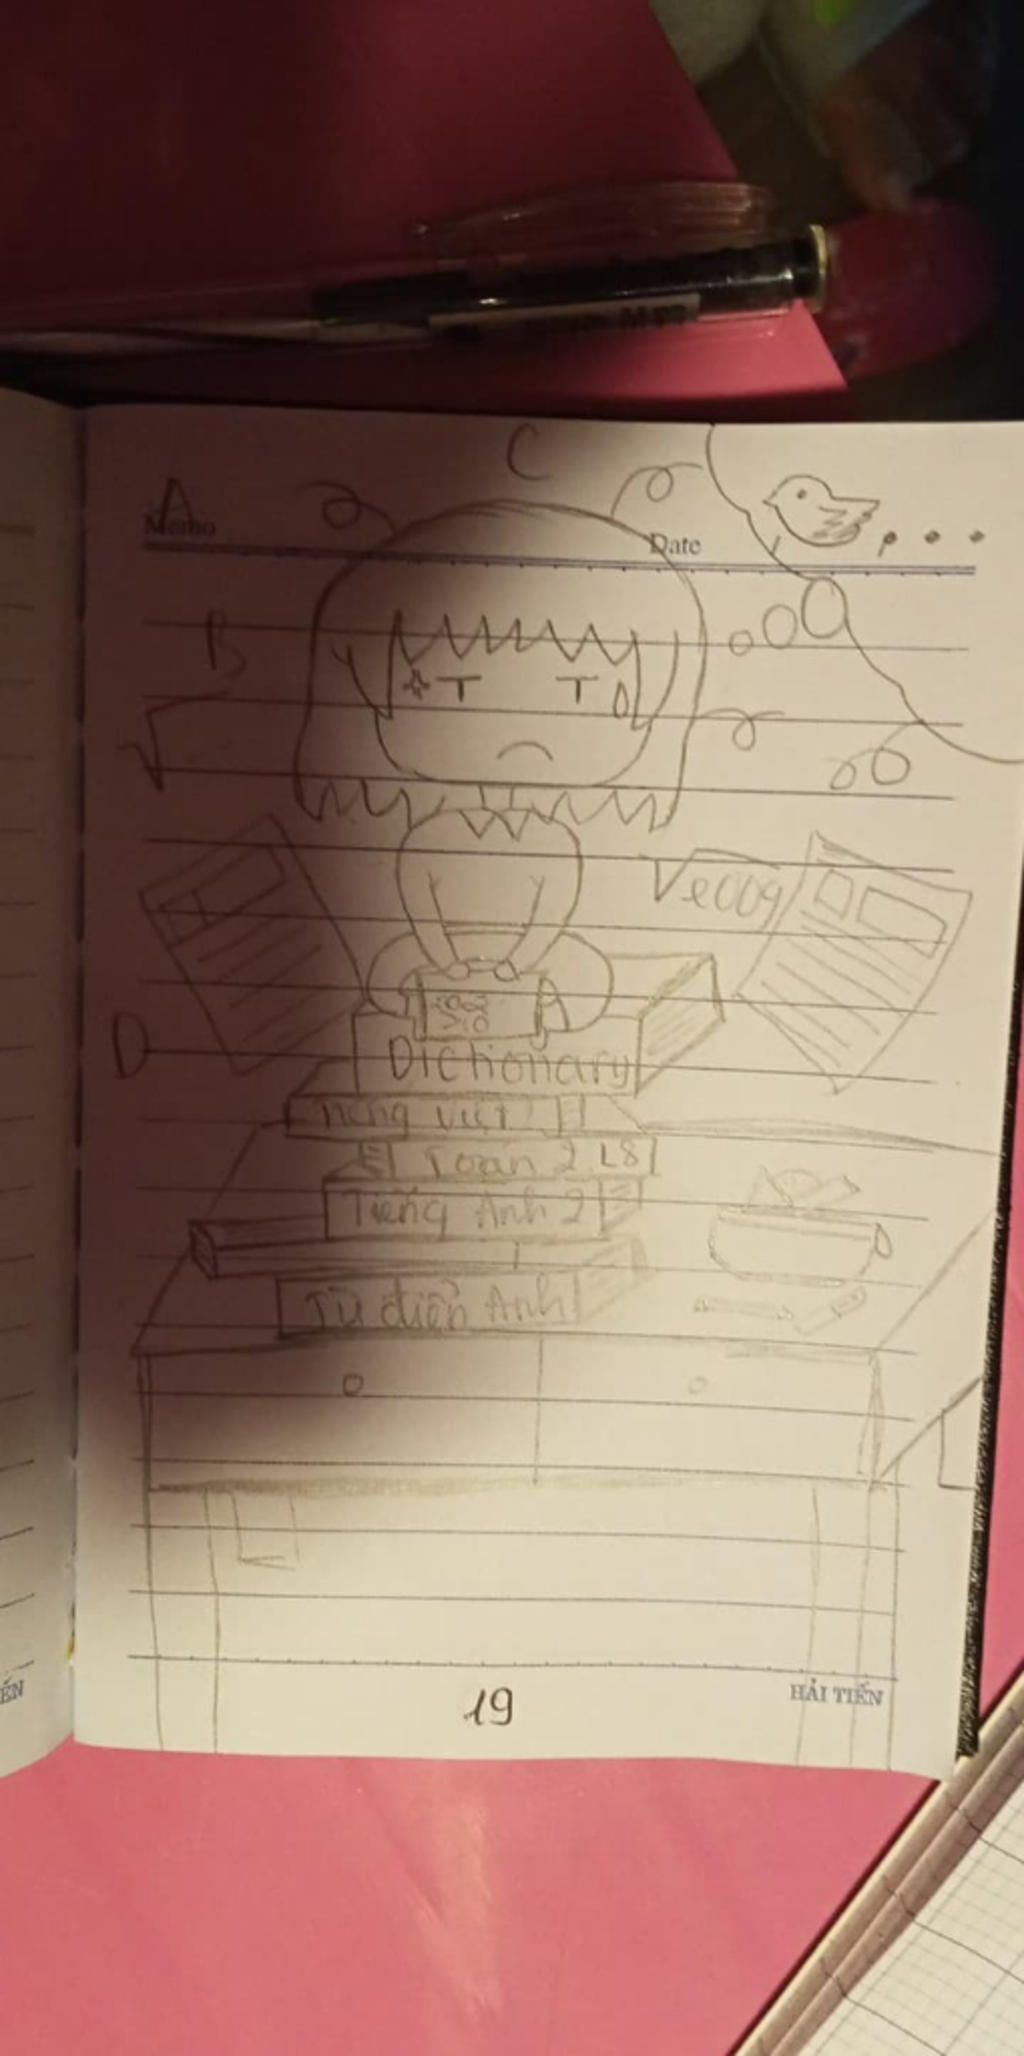 C
A
Memo
Date
B
√e009
D
Dictionary
Tiếng Việt
Toán 2 L8
Tiếng Anh 2
Từ điển Anh
19
HẢI TIẾN
ẾN